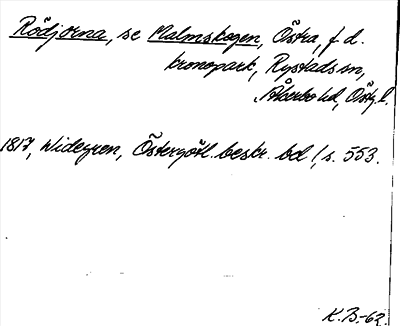 Rödjorna, se Malmskogen, Östra, f.d.
kronopark, Rystads sn,
Åkerbo hd, Östg.l.
1817, Widegren, Östergötl. beskr. bd 1, s. 553.
K.B.-63.